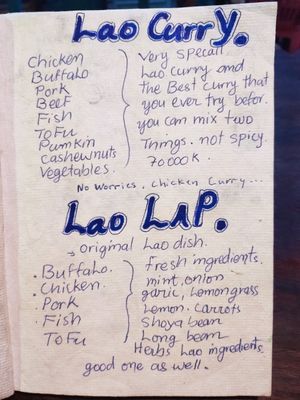 Lao Curry.
Chicken
Buffalo
Pork
Beef
Fish
ToFu
Pumkin
Cashewnuts
Vegetables.
Very specall
Lao curry and
the Best curry that
you ever try befor.
you can mix two
Things. not spicy.
70000k.
No Worries, chicken Curry...
Lao LAP.
original Lao dish.
. Buffalo.
. Chicken.
. Pork
. Fish
ToFu
fresh ingredients.
mint, onion
garic, Lemongrass
Lemon. Carrots
Shoya bean
Long beam
Herbs Lao ingredients
good one as well.